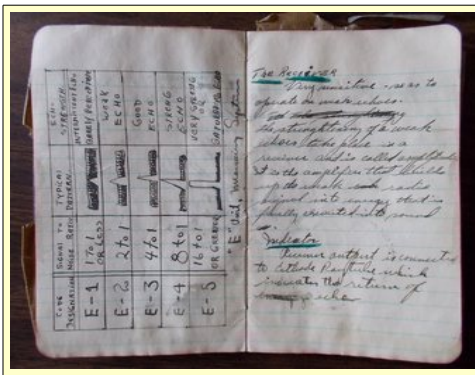 CODE DESIGNATION
SIGNAL TO NOISE RATIO
TYPICAL PATTERN
ECHO STRENGTH
E-1
1 to 1
OR LESS
E-2
2 to 1
WEAK
ECHO
E-3
4 to 1
GOOD
ECHO
E-4
8 to 1
STRONG
ECHO
E-5
16 to 1
OR GREATER
VERY STRONG
OR
"E" Unit, Measuring
The Receiver
Very sensitive - so as to
operate on weak echoes.
the strengthening of a weak
echoes to the plane is a
receiver and is called
It is the amplifier that builds
up the weak radio
signal into energy that is
finally converted into sound
Indicator
output is connected
to Cathode Ray tube which
indicates the return of